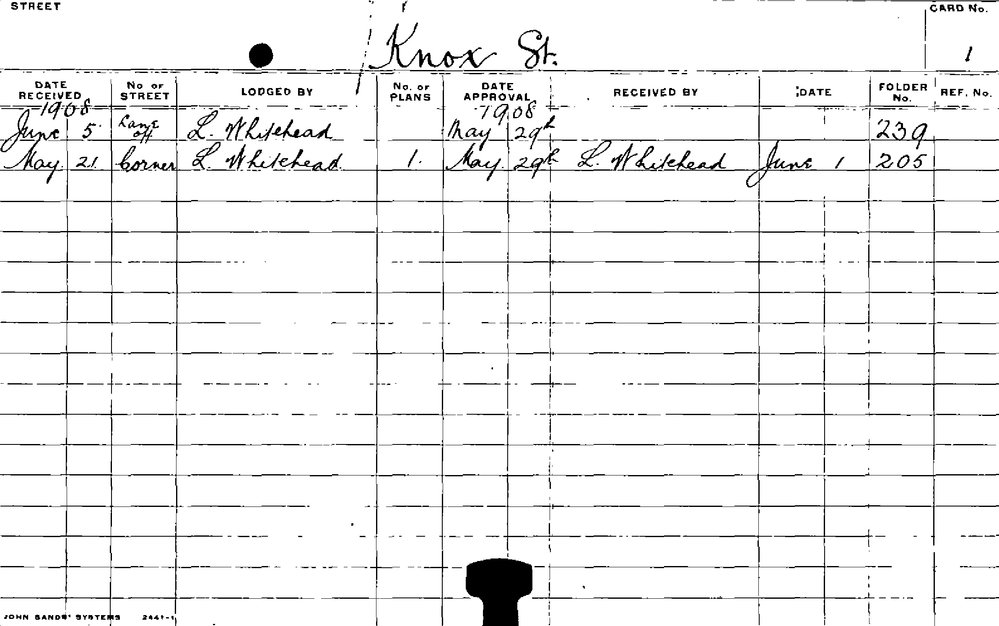 STREET Knox St. CARD No. 1
DATE RECEIVED No OF STREET LODGED BY No. OF PLANS DATE APPROVAL RECEIVED BY DATE FOLDER No. REF. No.
1908 1908
June 5 Lane off L. Whitehead May 29th 239
May 21 Corner L. Whitehead 1. May 29th L. Whitehead June 1 205
JOHN SANDS' SYSTEMS 2441-1